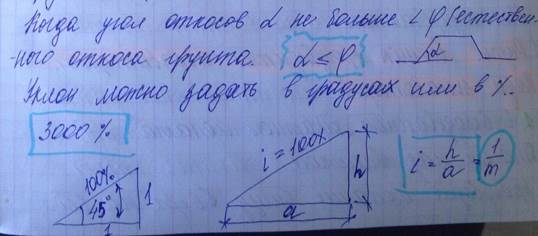 Когда угол откосов α не больше ∠φ (естествен-
-ного откоса грунта. α ≤ φ α
Уклон можно задать в градусах или в %.
3000 %
100% 45° 1 1
i = 100% h a
i = h/a = 1/m